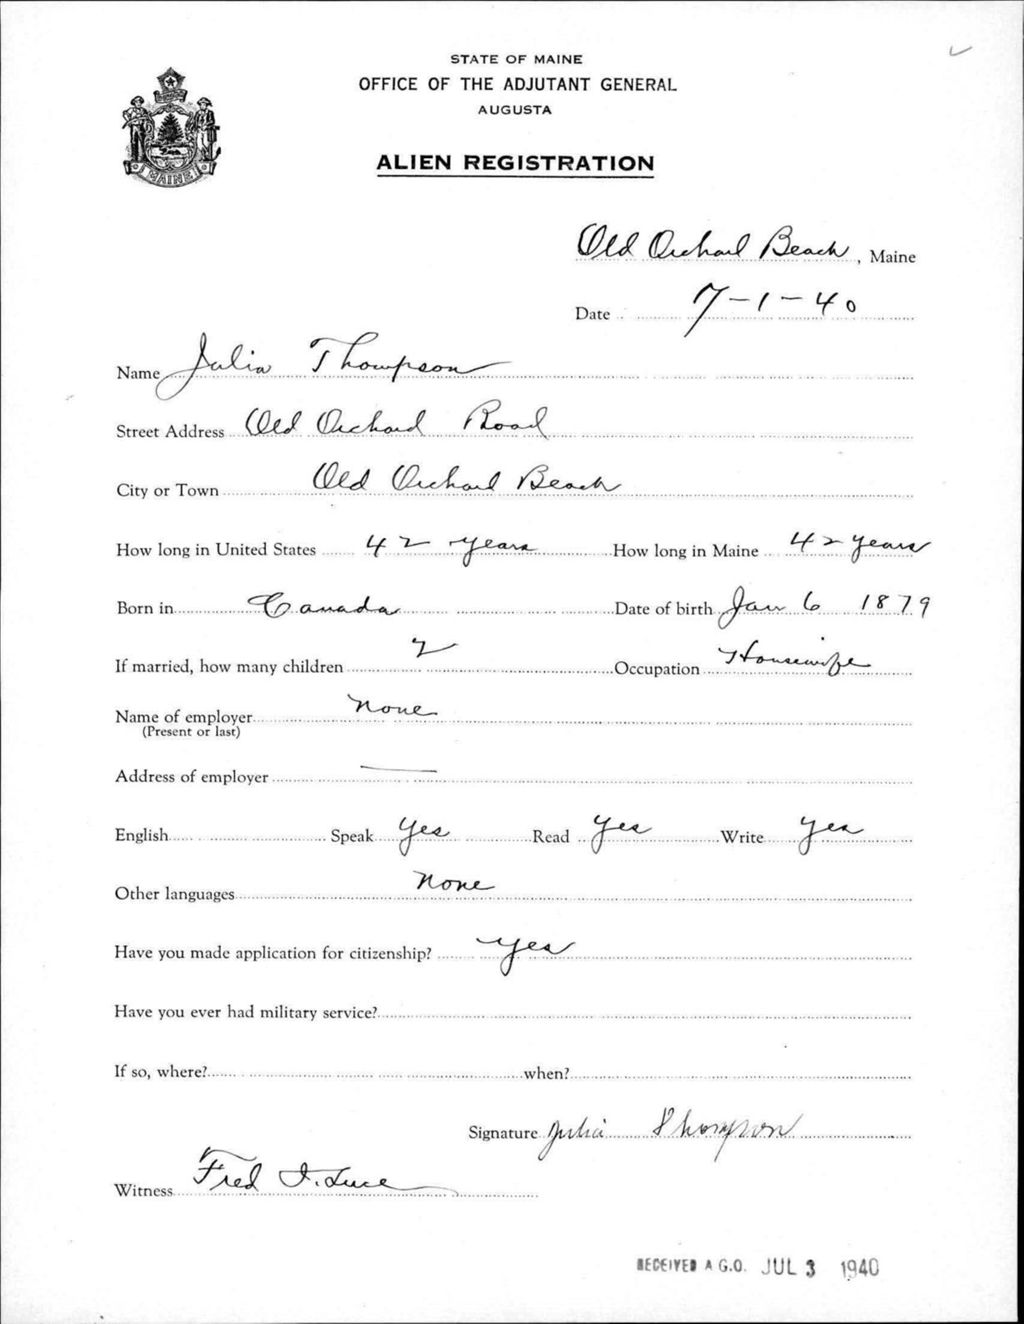 STATE OF MAINE
OFFICE OF THE ADJUTANT GENERAL
AUGUSTA
ALIEN REGISTRATION
MAINE
Old Orchard Beach, Maine
Date 7-1-40
Name Julia Thompson
Street Address Old Orchard Road
City or Town Old Orchard Beach
How long in United States 42 years How long in Maine 42 years
Born in Canada Date of birth Jan 6 1879
If married, how many children 2 Occupation Housewife
Name of employer None
(Present or last)
Address of employer —
English Speak Yes Read Yes Write Yes
Other languages None
Have you made application for citizenship? Yes
Have you ever had military service?
If so, where? when?
Signature Julia Thompson
Witness Fred I. Luce
RECEIVED A.G.O. JUL 3 1940